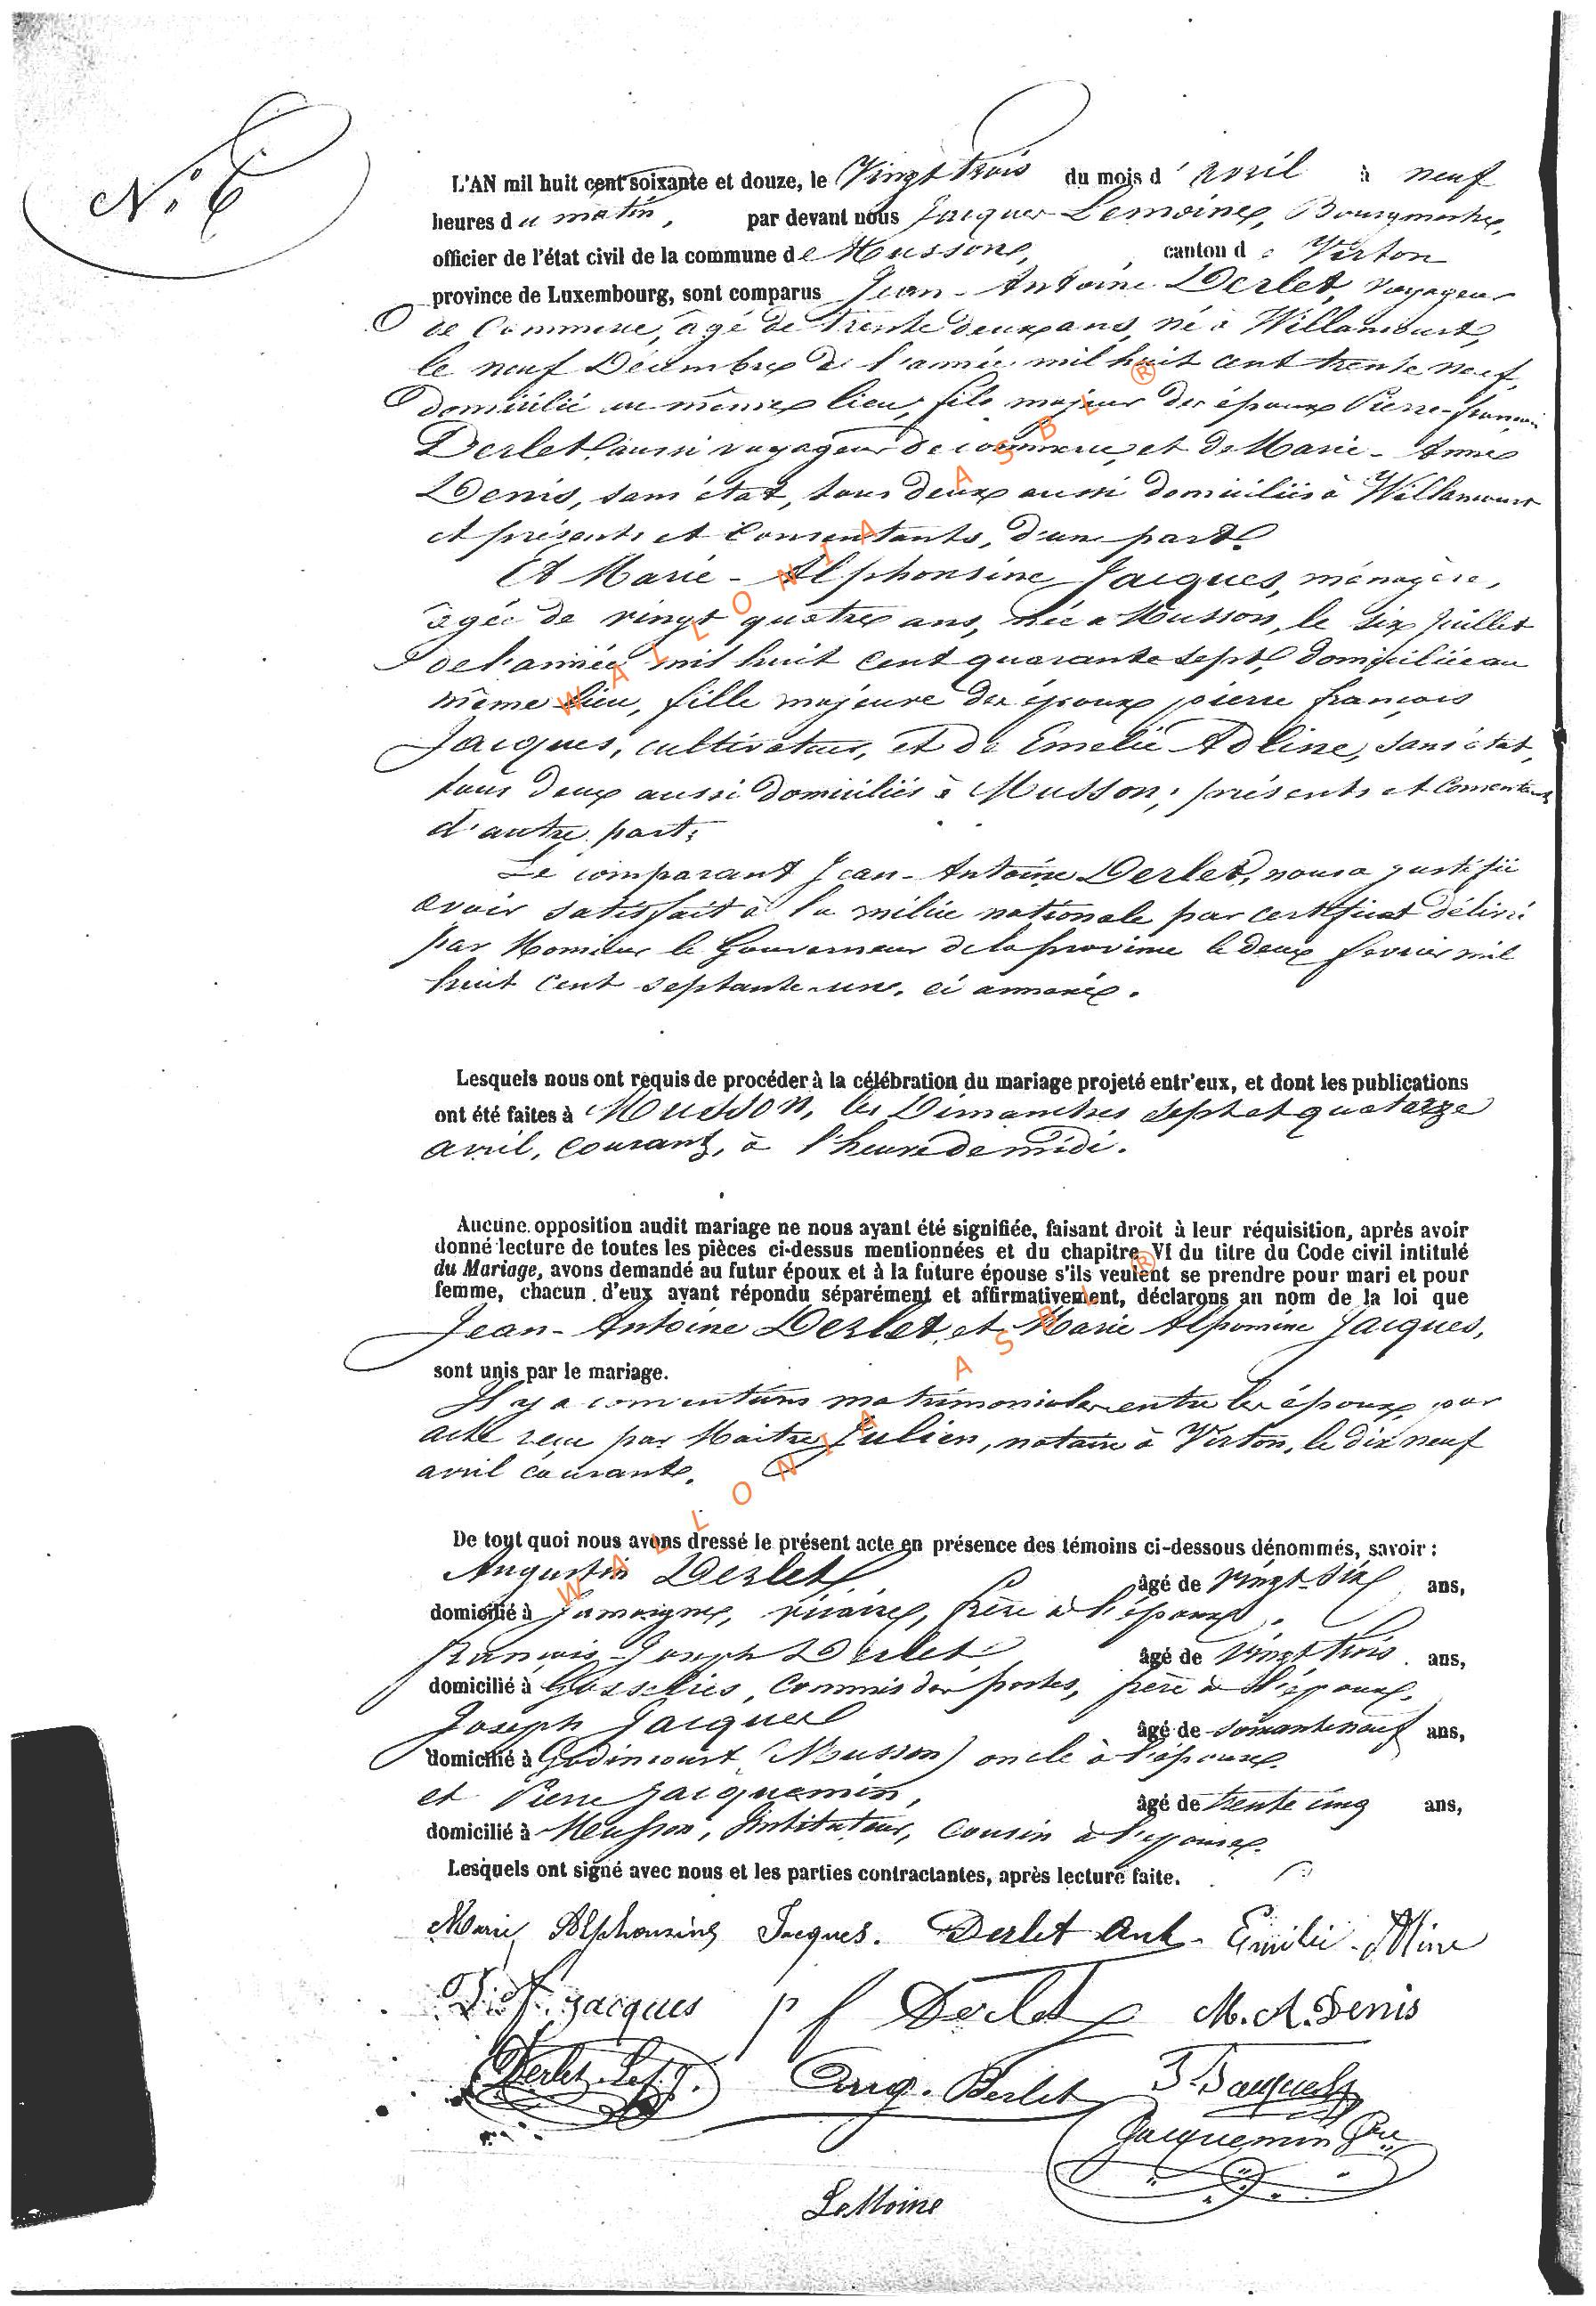 N.° 6
L'AN mil huit cent soixante et douze, le Vingt trois du mois d'avril à neuf
heures du matin, par devant nous Jacques Lemoine, Bourgmestre,
officier de l'état civil de la commune de Musson, canton de Virton
province de Luxembourg, sont comparus Jean-Antoine Derlet, voyageur
de Commerce, âgé de trente deux ans, né à Willancourt,
le neuf Décembre de l'année mil huit cent trente neuf,
domicilié au même lieu, fils majeur des époux Pierre-françois
Derlet aussi voyageur de commerce, et de Marie-Anne
Denis, sans état, tous deux aussi domiciliés à Willancourt
et présents et Consentants, d'une part.
Et Marie-Alphonsine Jacques, ménagère,
âgée de vingt quatre ans, née à Musson, le six Juillet
de l'année mil huit cent quarante sept, domiciliée au
même lieu, fille majeure des époux pierre françois
Jacques, cultivateur, et de Emelie Adline, sans état,
tous deux aussi domiciliés à Musson, présents et Consentants
d'autre part;
Le comparant Jean-Antoine Derlet, nous a justifié
avoir satisfait à la milice nationale par certificat délivré
par Monsieur le Gouverneur de la province le deux fevrier mil
huit cent septante-une, ci annexé.
Lesquels nous ont requis de procéder à la célébration du mariage projeté entr'eux, et dont les publications
ont été faites à Musson, les Dimanches sept et quatorze
avril, courant, à l'heure de midi.
Aucune opposition audit mariage ne nous ayant été signifiée, faisant droit à leur réquisition, après avoir
donné lecture de toutes les pièces ci-dessus mentionnées et du chapitre VI du titre du Code civil intitulé
du Mariage, avons demandé au futur époux et à la future épouse s'ils veulent se prendre pour mari et pour
femme, chacun d'eux ayant répondu séparément et affirmativement, déclarons au nom de la loi que
Jean-Antoine Derlet et Marie Alponsine Jacques,
sont unis par le mariage.
Il y a conventions matrimoniales entre les époux par
acte reçu par Maitre Julien, notaire à Virton, le dix neuf
avril courante.
De tout quoi nous avons dressé le présent acte en présence des témoins ci-dessous dénommés, savoir :
Augustin Derlet âgé de vingt-six ans,
domicilié à Jamoigne, vicaire, frère à l'époux,
françois-Joseph Derlet âgé de vingt trois ans,
domicilié à Gosselies, Commis des postes, frère à l'époux,
Joseph Jacques âgé de soixante neuf ans,
domicilié à Godincourt (Musson) oncle à l'épouse
et Pierre Jacquemin, âgé de trente cinq ans,
domicilié à Musson, Instituteur, cousin à l'épouse.
Lesquels ont signé avec nous et les parties contractantes, après lecture faite.
Marie Alphonsine Jacques. Derlet Ant. Emilie Aline
P. f. Jacques p f Derlet M. A. Denis
Derlet Aug. Derlet J. Jacques
Jacquemin
LeMoine
WALLONIA ASBL ®
WALLONIA ASBL ®